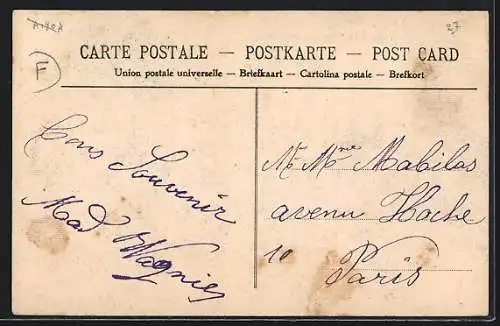 27
CARTE POSTALE — POSTKARTE — POST CARD
Union postale universelle — Briefkaart — Cartolina postale — Brefkort
F
Bons Souvenir
Mad Wagnies
M. Mme Mabilas
avenu Hoche
10
Paris